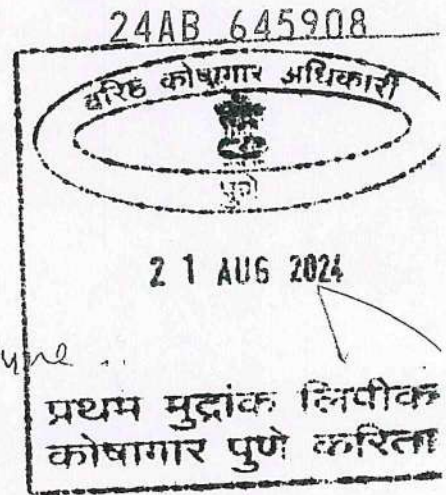 24AB 645908
वरिष्ठ कोषागार अधिकारी
पुणे
2 1 AUG 2024
प्रथम मुद्रांक लिपीक
कोषागार पुणे करिता